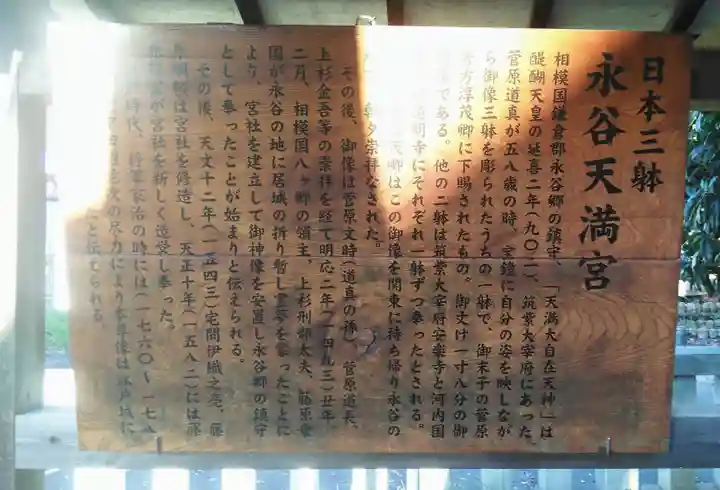 日本三躰
永谷天満宮
相模国鎌倉郡永谷郷の鎮守、「天満大自在天神」は
醍醐天皇の延喜二年(九〇二)、筑紫大宰府にあった
菅原道真が五八歳の時、宝鏡に自分の姿を映しなが
ら御像三躰を彫られたうちの一躰で、御末子の菅原
淳茂卿に下賜されたもの。御丈け一寸八分の御
である。他の二躰は筑紫大宰府安楽寺と河内国
道明寺にそれぞれ一躰ずつ奉ったとされる。
卿はこの御像を関東に持ち帰り永谷の
朝夕崇拝なされた。
その後、御像は菅原文時(道真の孫)菅原道長、
上杉金吾等の崇拝を経て明応二年(一四九三)丑年
二月、相模国八ヶ郷の領主、上杉刑部太夫、藤原
国が永谷の地に居城の折り暫し霊夢を蒙ったことに
より、宮社を建立して御神像を安置し永谷郷の鎮守
として奉ったことが始まりと伝えられる。
その後、天文十二年(一五四三)宅間伊織之亮、藤
は宮社を修造し、天正十年(一五八二)には藤
が宮社を新しく造営し奉った。
時代、将軍家治の時には(一七六〇〜一七八
の尽力により本尊像は江戸城に
と伝えられる。